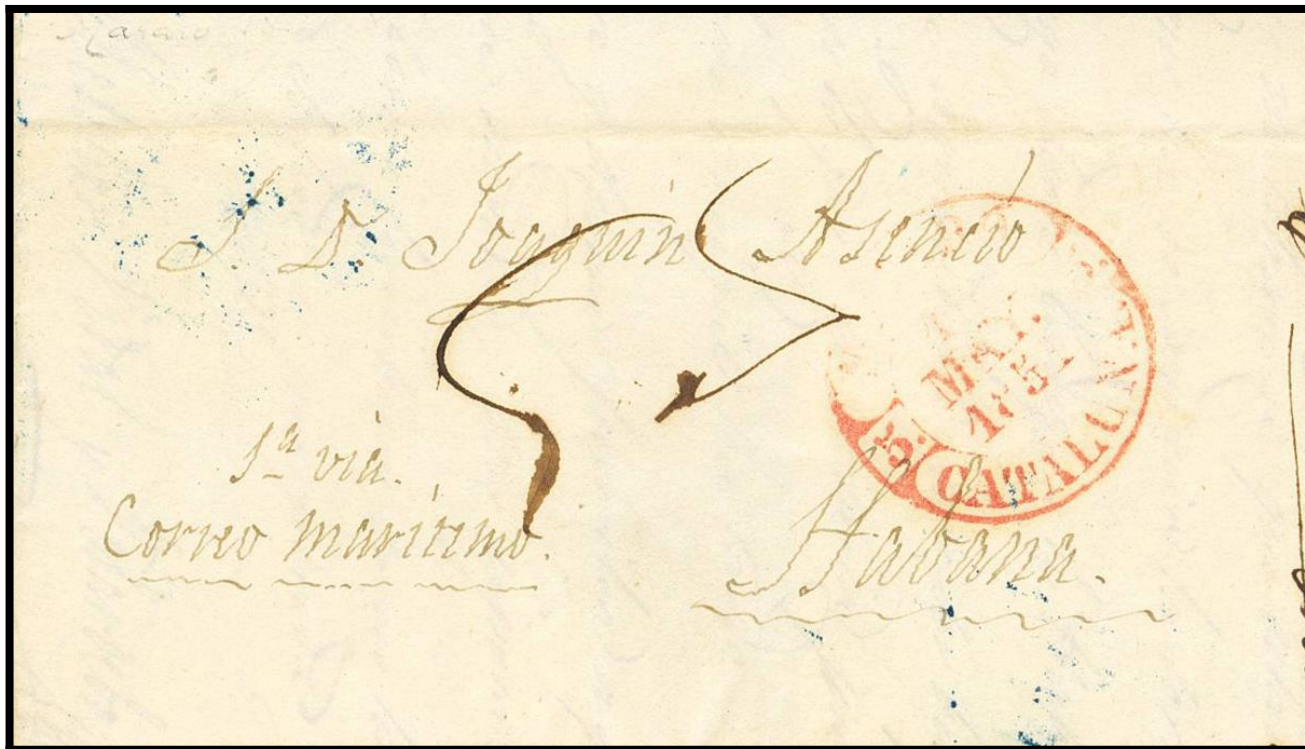 S. D. Joaquin Asencio
MAY.
CATALUÑA
1ª via.
Correo maritimo.
Habana.